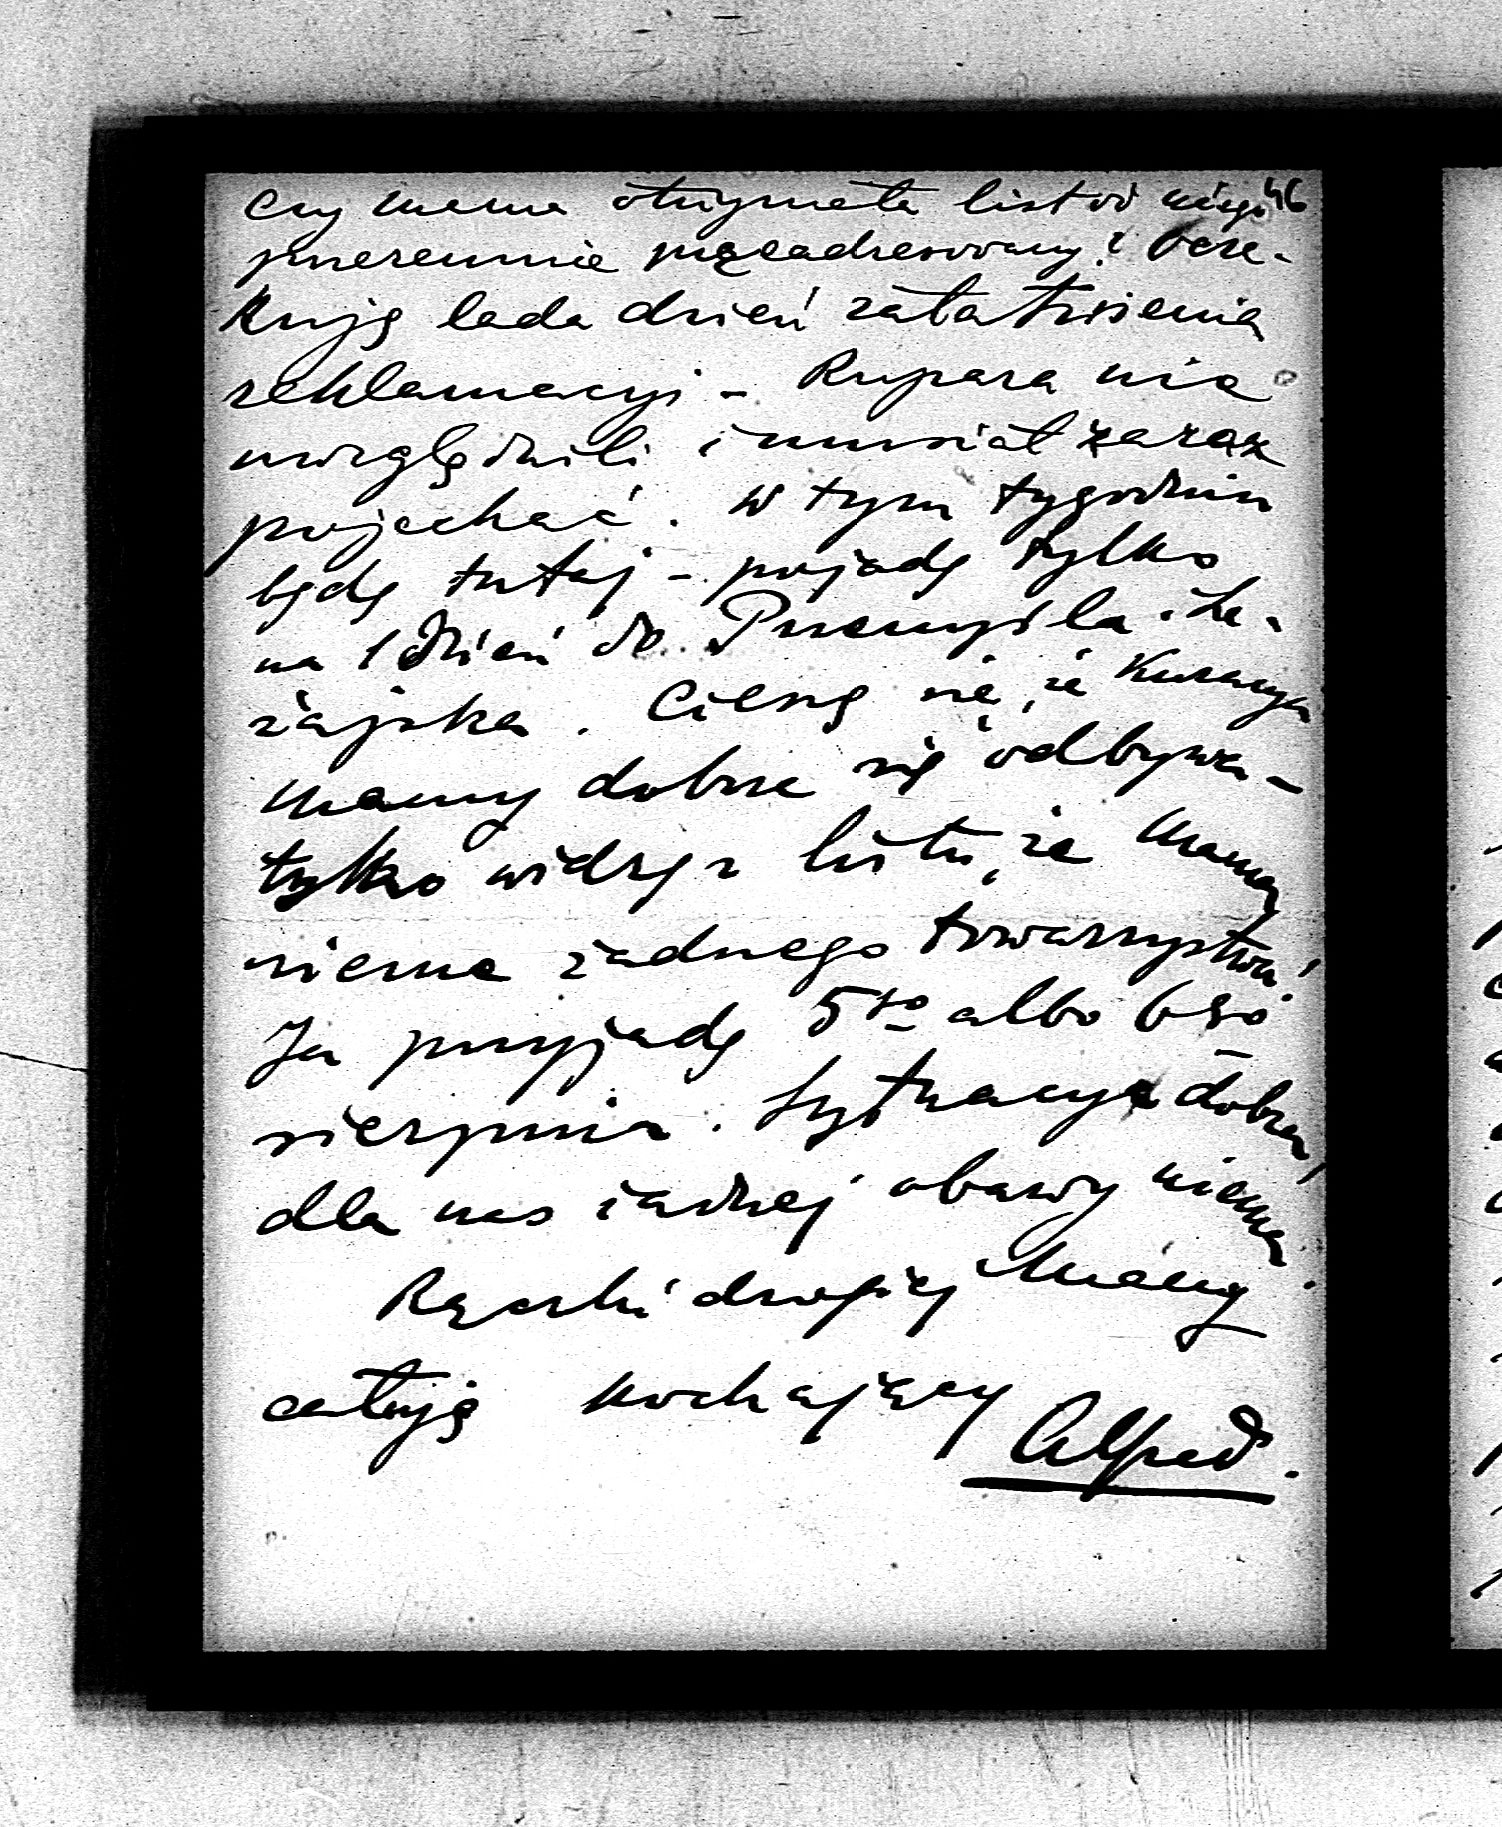 Czy Mama otrzymała list od niego 46
przezemnie przeadresowany? Ocze-
kuję lada dzień załatwienia
reklamacyi – Rupara nie
uwzględnili i musiał zaraz
pojechać. W tym tygodniu
będę tutaj – pojadę tylko
na 1 dzień do Przemyśla i Le-
żajska. Cieszę się, że Kuracya
Mamy dobrze się odbywa –
tylko widzę z listu, że Mama
niema żadnego towarzystwa!
Ja przyjadę 5go albo 6go
sierpnia. Sytuacya dobra,
dla nas żadnej obawy niema.
Rączki drogiej Mamy
całuję kochający
Alfred.